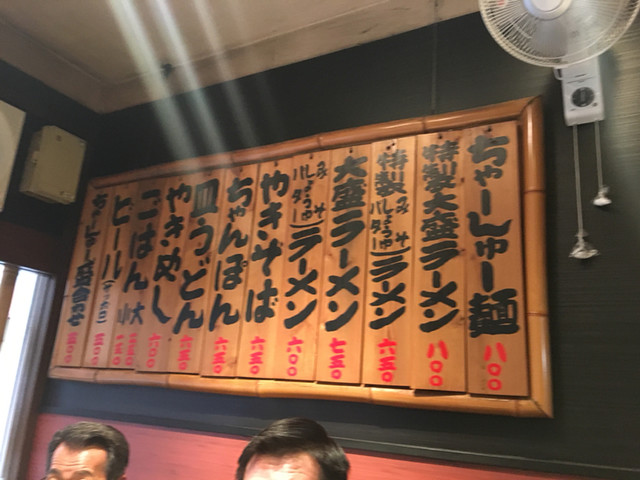 ちゃーしゅー麺 八〇〇
特製大盛ラーメン 八〇〇
特製(みそ しょうゆ バター)ラーメン 六五〇
大盛ラーメン 七五〇
(みそ しょうゆ バター)ラーメン 六〇〇
やきそば 六五〇
ちゃんぽん 六五〇
皿うどん 六五〇
やきめし 六〇〇
ごはん 大 小
ビール
ちゃーしゅー盛合わせ